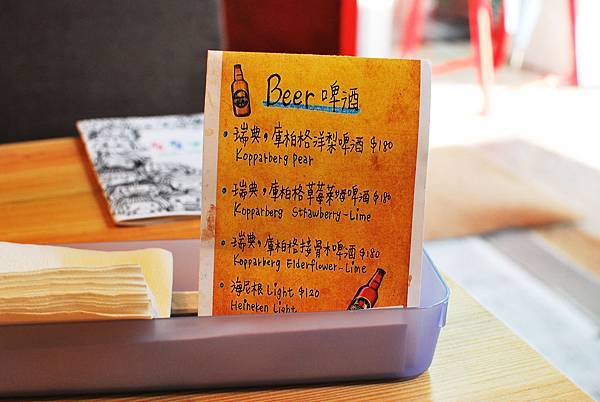 Beer 啤酒
• 瑞典，庫柏格洋梨啤酒 $180
Kopparberg pear
• 瑞典，庫柏格草莓萊姆啤酒 $180
Kopparberg Strawberry-Lime
• 瑞典，庫柏格接骨木啤酒 $180
Kopparberg Elderflower-Lime
• 海尼根 Light $120
Heineken Light